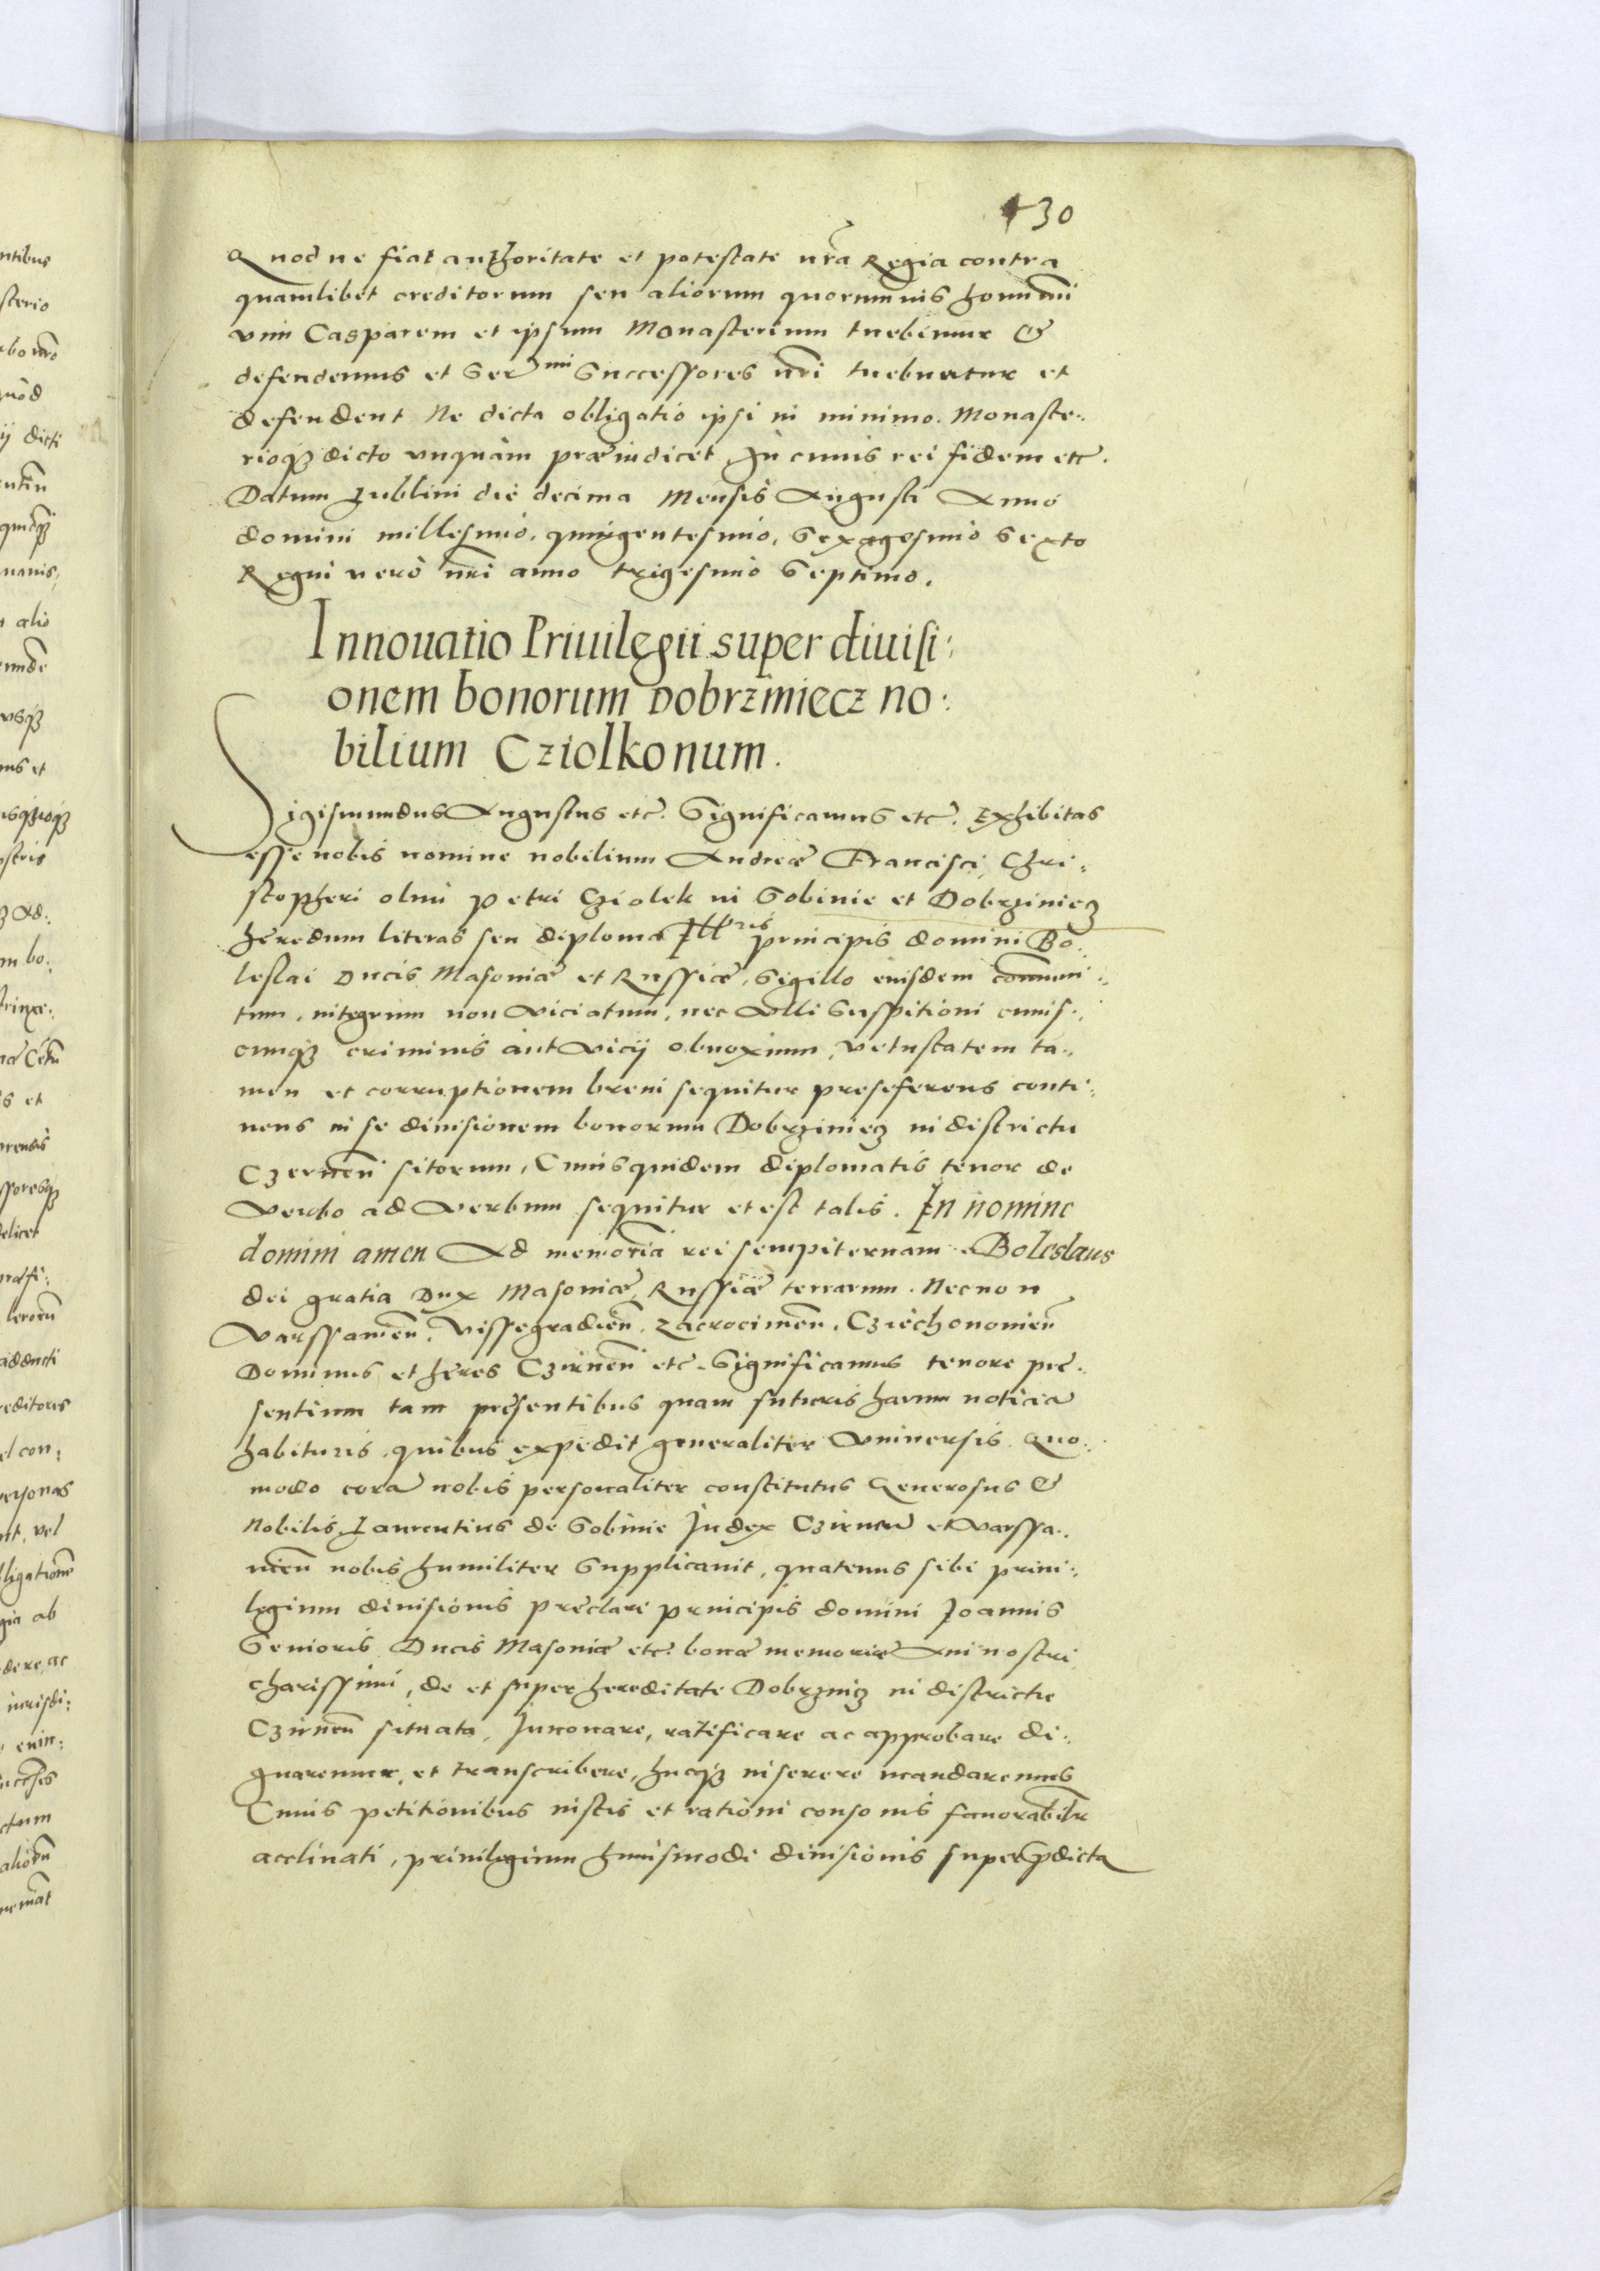 130
Quod ne fiat authoritate et potestate nra Regia contra
quamlibet creditorum seu aliorum quorumuis hominum
vim Casparem et ipsum Monasterium tuebimur &
defendemus et Ser mi Successores nri tuebuntur et
defendent Ne dicta obligatio ipsi in minimo. Monaste:
rioqȝ dicto vnquam præiudicet. In cuius rei fidem etc.
Datum Lublini die decima Mensis Augusti Anno
domini millesimo, quingentesimo, Sexagesimo Sexto
Regni vero nri anno trigesimo Septimo.
Innouatio Priuilegii super diuisi:
onem bonorum Dobrziniecz no:
bilium Cziolkonum.
Sigismundus Augustus etc. Significamus etc. Exhibitas
esse nobis nomine nobilium Andreæ Francisci, Chri:
stopheri olim Petri Cziolek in Sobinie et Dobrziniecz
heredum literas seu diploma Illris principis domini Bo:
leslai Ducis Masoniæ et Russiæ, Sigillo eiusdem communi:
tum, integrum non viciatum, nec vlli Suspitioni cuius:
cunqȝ criminis aut vicij obnoxium, vetustatem ta:
men et corruptionem breui sequitur preseferens conti:
nens in se diuisionem bonorum Dobrziniecz in districtu
Czernen sitorum, Cuius quidem diplomatis tenor de
verbo ad verbum sequitur et est talis. In nomine
domini amen Ad memoria rei sempiternam. Boleslaus
dei gratia Dux Masoniæ, Russiæ terrarum. Necnon
Varssauien, Vissegradien, Zacrocimen, Cziechonouien
Dominus et heres Czirnen etc. Significamus tenore pre:
sentium tam presentibus quam futuris harum noticia
habituris, quibus expedit generaliter vniuersis. Quo:
modo cora nobis personaliter constitutus Generosus &
Nobilis Laurentius de Sobinie Judex Czirnen et Varssa:
uien nobis humiliter Supplicauit, quatenus sibi priui:
legium diuisionis preclare principis domini Joannis
Senioris Ducis Masoniæ etc. bonæ memoriæ Aui nostri
charissimi, de et super hereditate Dobrzinicz in districtu
Czirnen situata, Innouare, ratificare ac approbare di:
gnaremur, et transcribere, hucqȝ inserere mandaremus
Cuius petitionibus iustis et rationi consonis fauorabiliter
acclinati, priuilegium huiusmodi diuisionis super pdicta